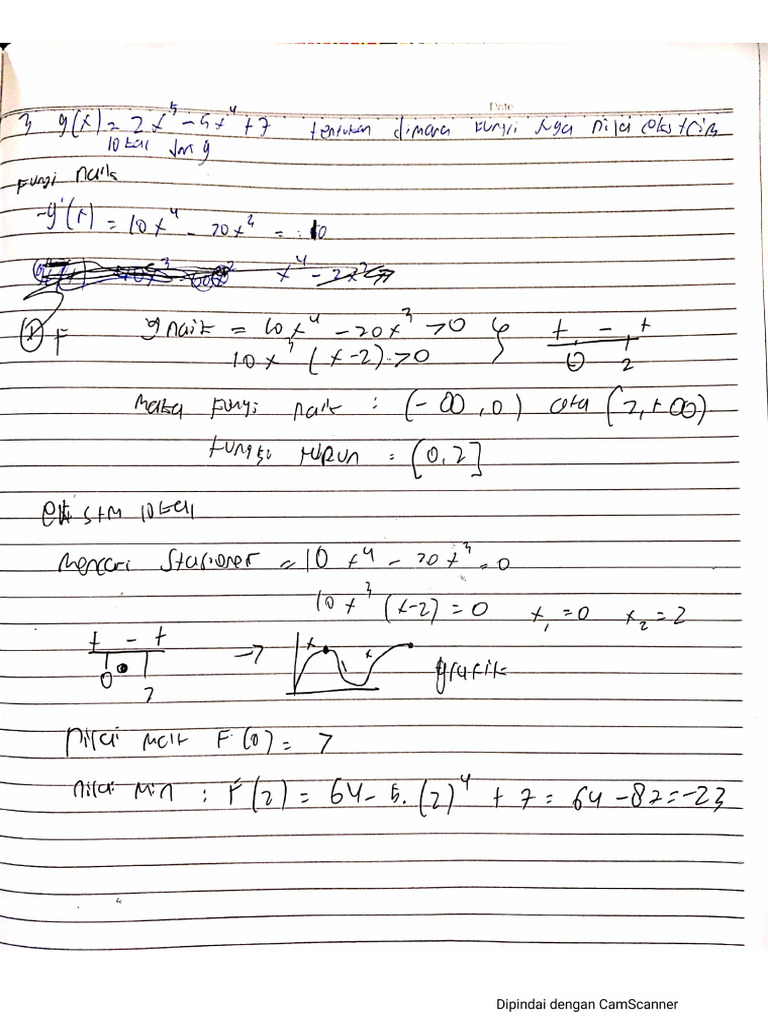 Date
3 g(x) = 2x⁵ - 5x⁴ + 7 tentukan dimana fungsi nilai ekstrim
lokal
Fungsi naik
g'(x) = 10x⁴ - 20x³ = 0
g naik = 10x⁴ - 20x³ > 0 + - +
10x³ (x-2) > 0 0 2
maka fungsi naik : (-∞, 0) (2, +∞)
fungsi turun = [0, 2]
lokal
mencari stasioner = 10x⁴ - 20x³ = 0
10x³ (x-2) = 0 x₁ = 0 x₂ = 2
+ - + → grafik
0 2
nilai mak F(0) = 7
nilai min : F(2) = 64 - 5.(2)⁴ + 7 = 64 - 87 = -23
Dipindai dengan CamScanner